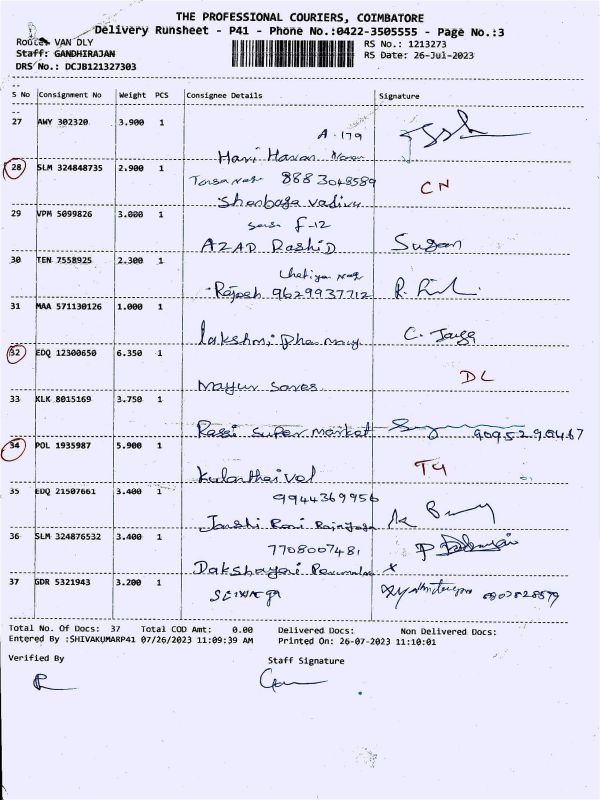 THE PROFESSIONAL COURIERS, COIMBATORE
Delivery Runsheet - P41 - Phone No.:0422-3505555 - Page No.:3
Route: VAN DLY
RS No.: 1213273
Staff: GANDHIRAJAN
RS Date: 26-Jul-2023
DRS No.: DCJB121327303
S No Consignment No Weight PCS Consignee Details Signature
27 AWY 302320 3.900 1
A-179
Hari Haran
28 SLM 324848735 2.900 1
8883048589
CN
Shenbaga Vadivu
29 VPM 5099826 3.000 1
F-12
AZAD Rashid
Sugan
30 TEN 7558925 2.300 1
Rajesh 9629937712
31 MAA 571130126 1.000 1
Lakshmi Pharmacy
C.
32 EDQ 12300650 6.350 1
DL
Mayur
33 KLK 8015169 3.750 1
Rassi Super market
34 POL 1935987 5.900 1
Kulanthaivel
35 EDQ 21507661 3.400 1
9944369956
Janshi Rani
36 SLM 324876532 3.400 1
7708007481
Dakshayani
37 GDR 5321943 3.200 1
Total No. Of Docs: 37 Total COD Amt: 0.00 Delivered Docs: Non Delivered Docs:
Entered By :SHIVAKUMARP41 07/26/2023 11:09:39 AM Printed On: 26-07-2023 11:10:01
Verified By
Staff Signature